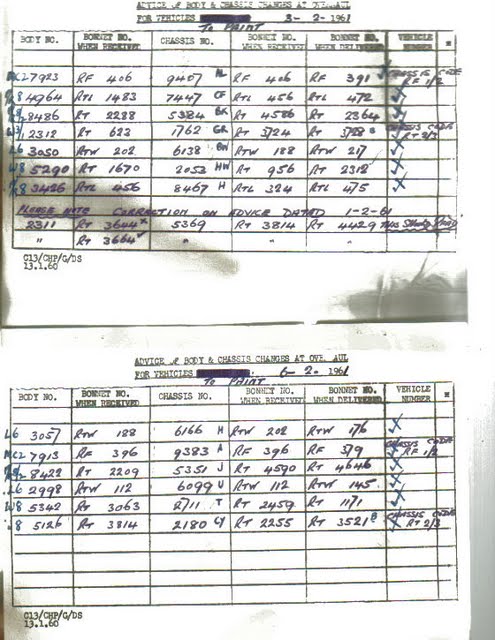 ADVICE OF BODY & CHASSIS CHANGES AT OVERHAUL
FOR VEHICLES 3-2. 1961
TO PAINT
BODY NO. BONNET NO. WHEN RECEIVED CHASSIS NO. BONNET NO. WHEN RECEIVED BONNET NO. WHEN DELIVERED VEHICLE NUMBER *
MCL 7923 RF 406 9407 AL RF 406 RF 391 CHASSIS CODE RF 1/2
4964 RTL 1483 7447 CF RTL 456 RTL 472
8486 RT 2288 5384 BK RT 4586 RT 2364
2312 RT 622 1762 GR RT 3724 RT 3728 B CHASSIS CODE RT 2/3
L6 3050 RTW 202 6138 BW RTW 188 RTW 217
W8 5290 RT 1670 2053 HW RT 956 RT 2312
3426 RTL 456 8467 H RTL 324 RTL 475
PLEASE NOTE CORRECTION ON ADVICE DATED 1-2-61
2311 RT 3644 x 5369 RT 3814 RT 4429 THIS SHOULD READ
" RT 3664 ✓ " " "
C13/CHP/G/DS
13.1.60
ADVICE OF BODY & CHASSIS CHANGES AT OVERHAUL
FOR VEHICLES 6-2. 1961
TO PAINT
BODY NO. BONNET NO. WHEN RECEIVED CHASSIS NO. BONNET NO. WHEN RECEIVED BONNET NO. WHEN DELIVERED VEHICLE NUMBER *
L6 3057 RTW 188 6166 H RTW 202 RTW 176
MCL 7913 RF 396 9383 A RF 396 RF 379 CHASSIS CODE RF 1/2
8422 RT 2209 5351 J RT 4590 RT 4646
L6 2998 RTW 112 6099 U RTW 112 RTW 145
W8 5342 RT 3063 2711 T RT 2459 RT 1171
8 5126 RT 3814 2180 CY RT 2255 RT 3521 B CHASSIS CODE RT 2/3
C13/CHP/G/DS
13.1.60